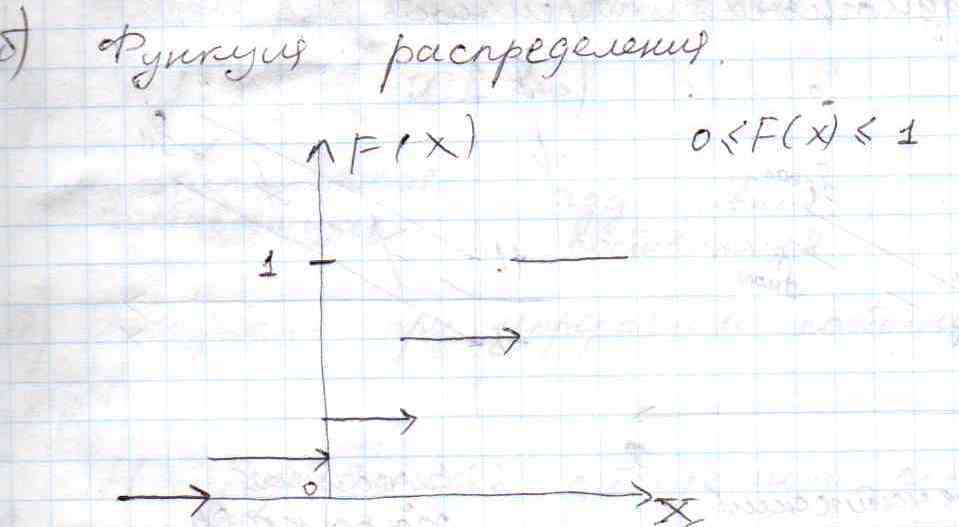 б) Функция распределения.
F(X)
0 ≤ F(x) ≤ 1
1
0
X